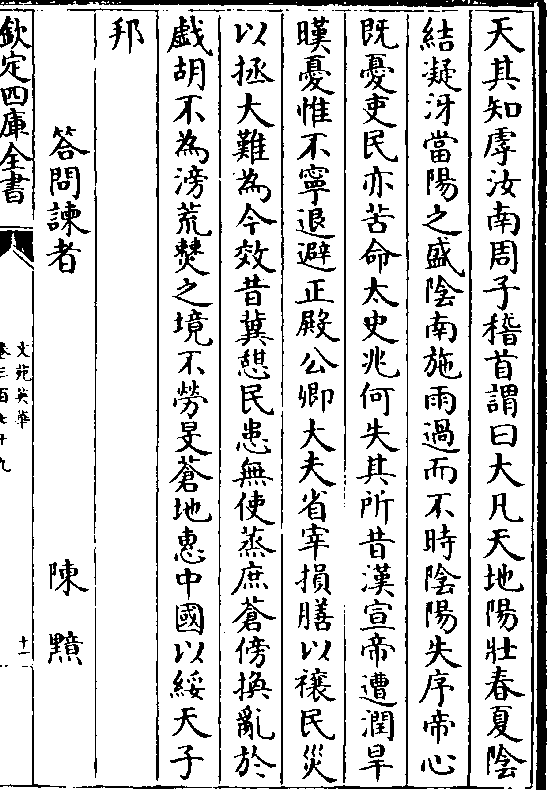 天其知虖汝南周子稽首謂曰大凡天地陽壯春夏陰
結凝沍當陽之盛陰南施雨過而不時陰陽失序帝心
既憂吏民亦苦命太史兆何失其所昔漢宣帝遭潤旱
暵憂惟不寧退避正殿公卿大夫省宰損膳以禳民災
以拯大難為今效昔冀憇民患無使蒸庶蒼傍換亂於
戯胡不為滂荒爕之境不勞旻蒼地惠中國以綏天子
邦
答問諫者 陳黯
欽定四庫全書
文苑英華
卷三百七十九
十一